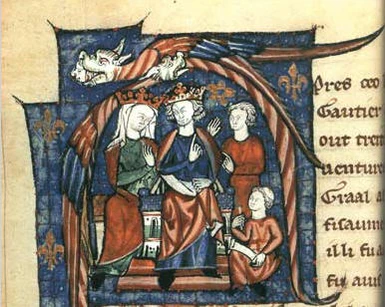 Pres ceo
Gautier
out tren
uenture
Graal a
fisaume
illi fu a
fu aui